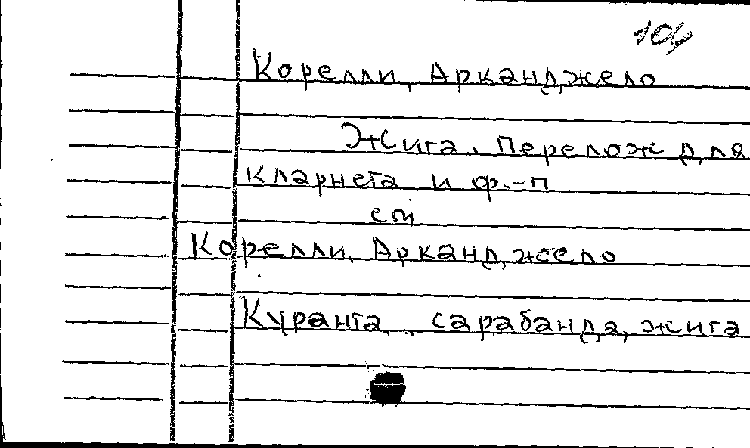 104
Корелли, Арканджело
Жига. Перелож для
кларнета и ф.-п
см
Корелли, Арканджело
Куранта, сарабанда, жига